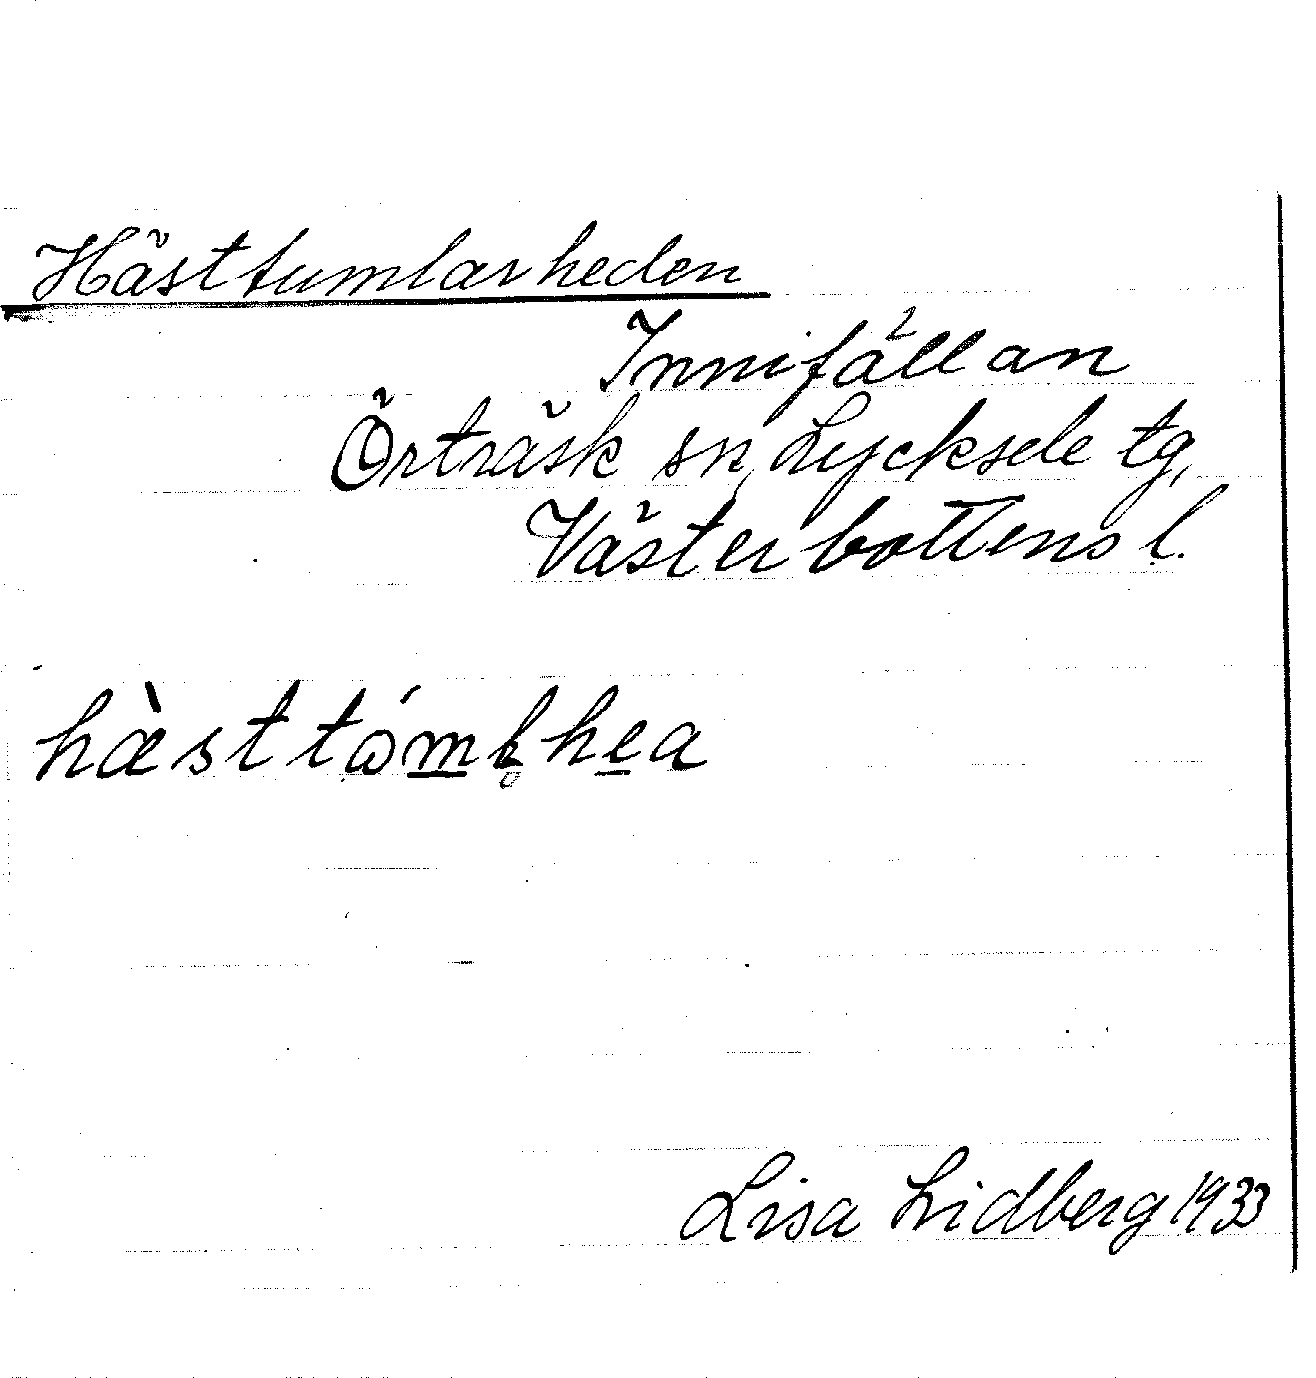 Hästtumlarheden
Innifällan
Örträsk sn, Lycksele tg,
Västerbottens l.
hæ̀sttó̤m̲l̥he̲a
Lisa Lidberg 1933